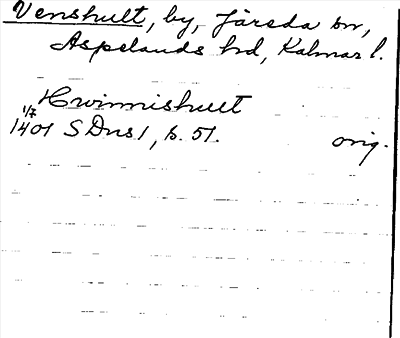 Venshult, by, Järeda sn,
Aspelands hd, Kalmar l.
Hwinnishult
1/7
1401 SDns 1, s. 51. orig.